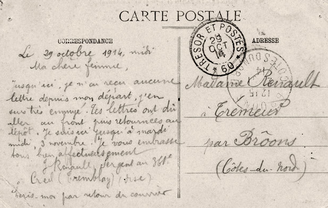 CARTE POSTALE
CORRESPONDANCE
ADRESSE
Le 29 octobre 1914, midi
Ma chère femme,
jusqu'ici, je n'ai reçu aucune
lettre depuis mon départ, j'en
suis très ennuyé. Tes lettres ont dû
aller au front puis retournées au
dépôt. Je suis ici jusqu'à mardi
midi, 3 novembre. Je vous embrasse
tous bien affectueusement
Renault, sergent au
Creil (Tremblay) Oise
Écris-moi par retour du courrier
TRÉSOR ET POSTES
29
OCT
14
* 60 *
Madame Renault
à Trémeur
par Brôons
(Côtes-du-Nord)